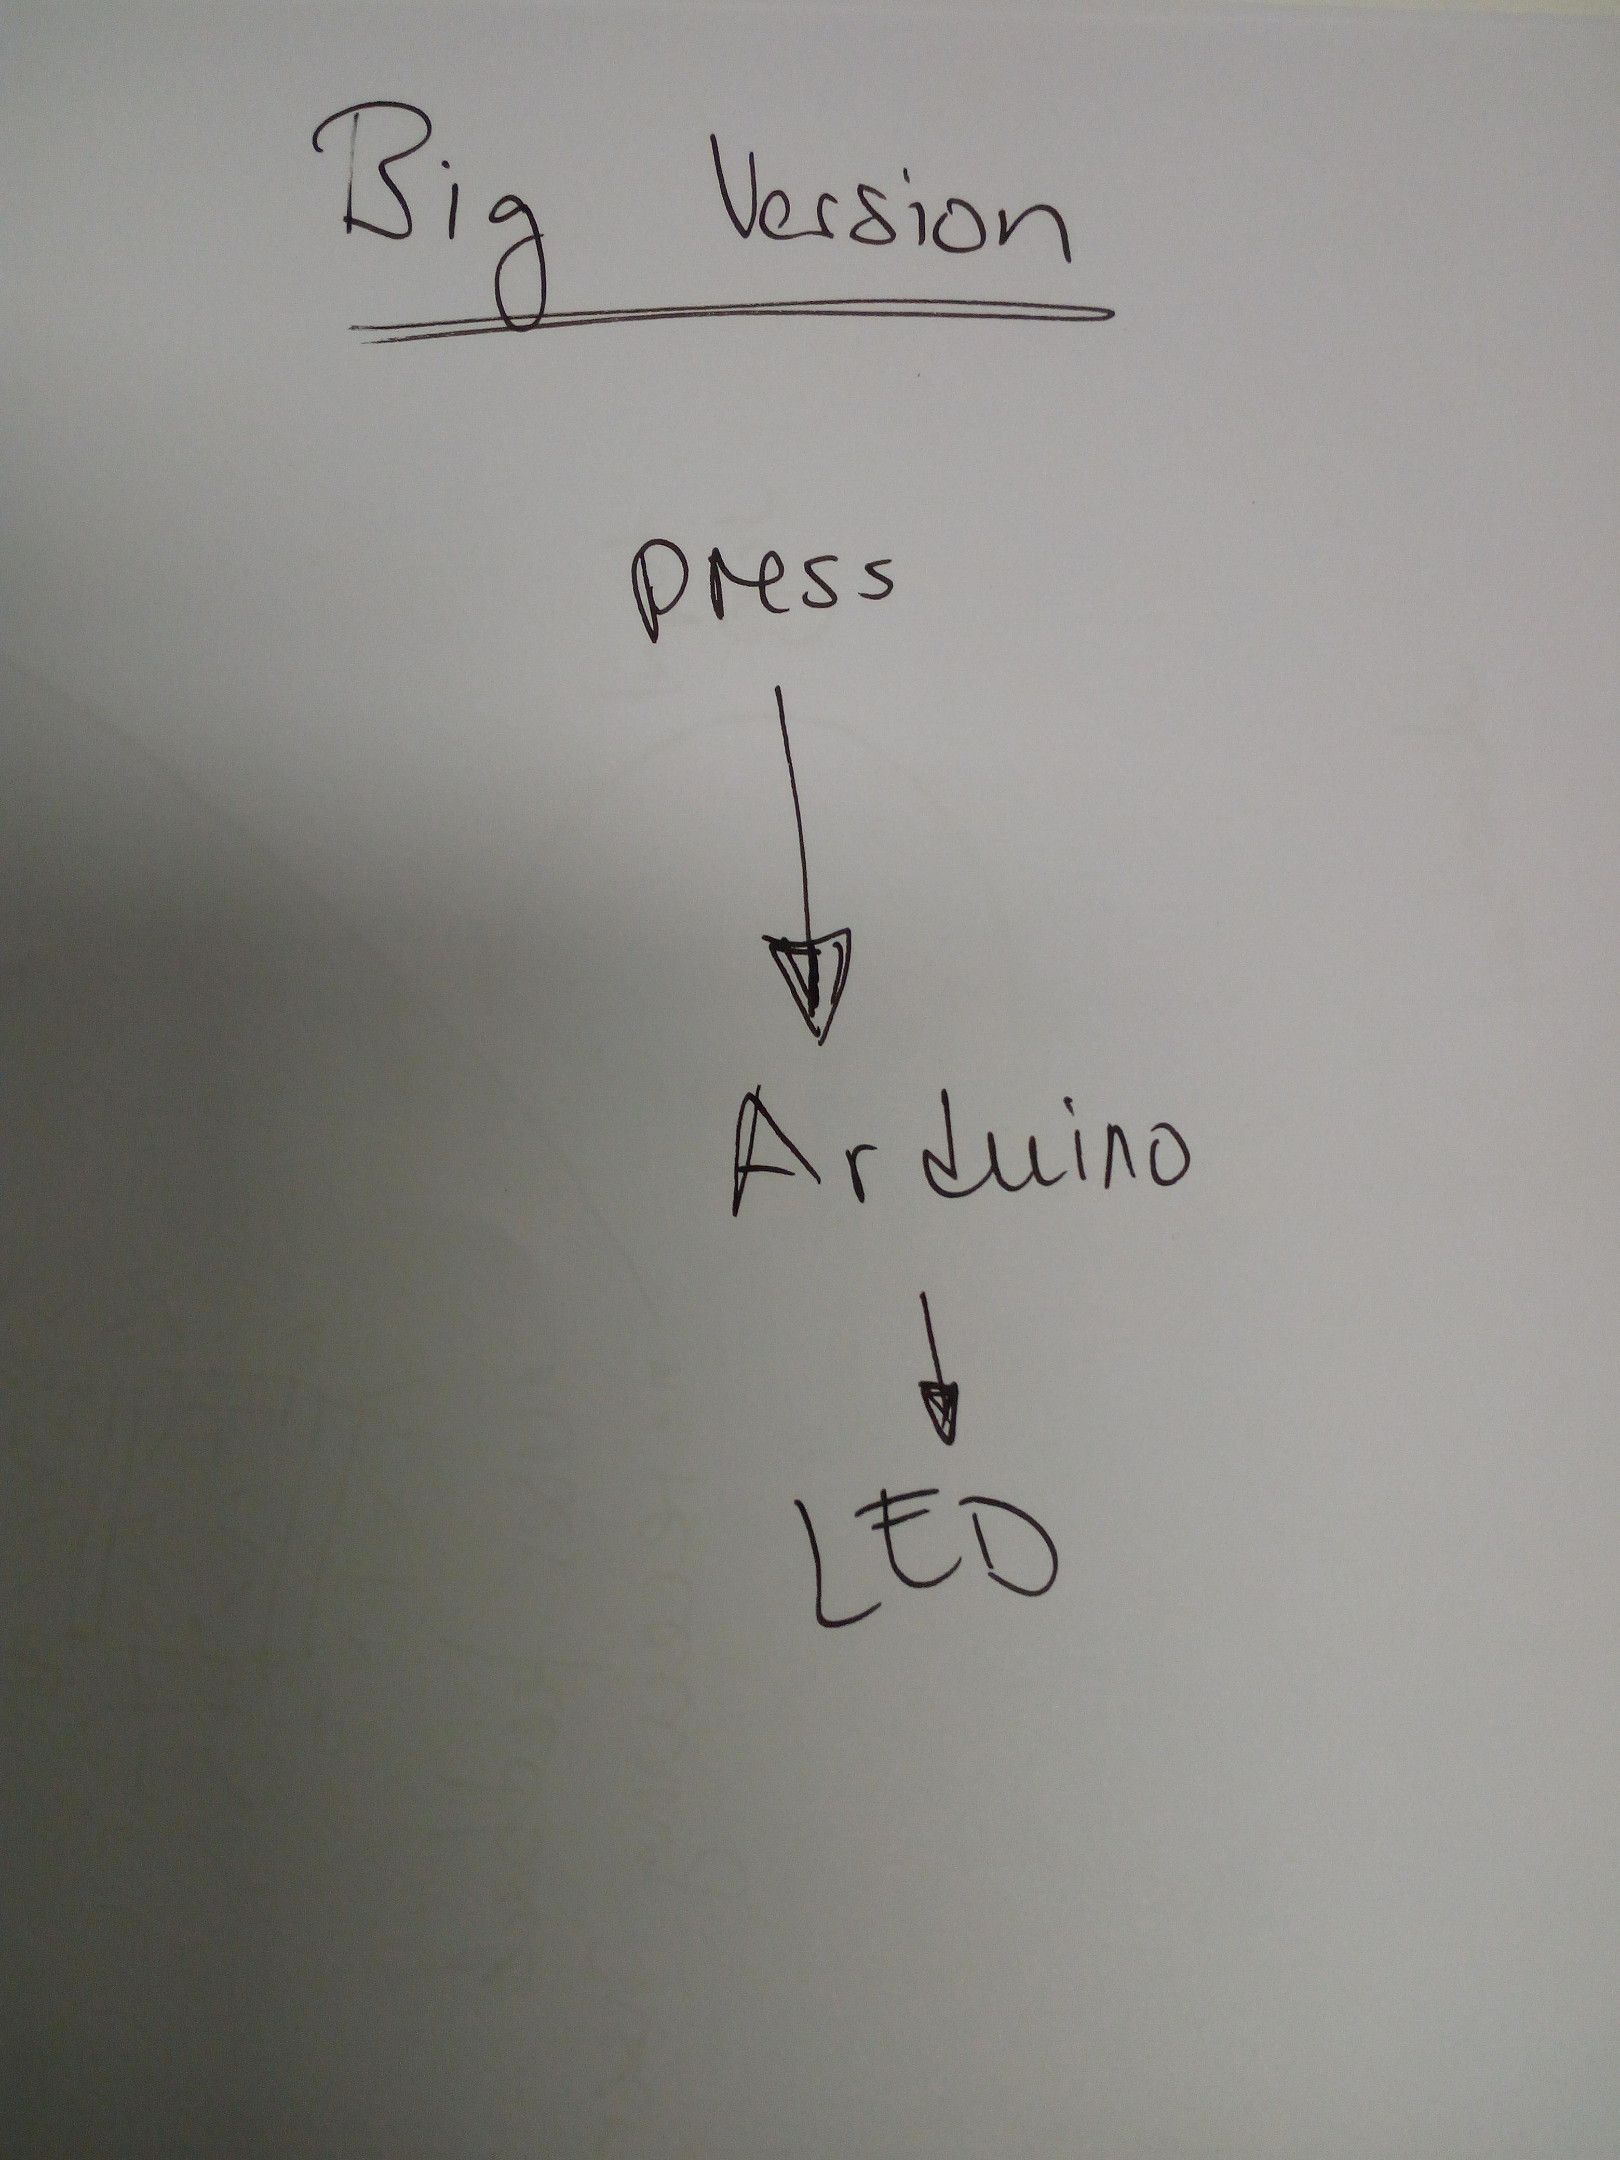 Big Version
press
Arduino
LED